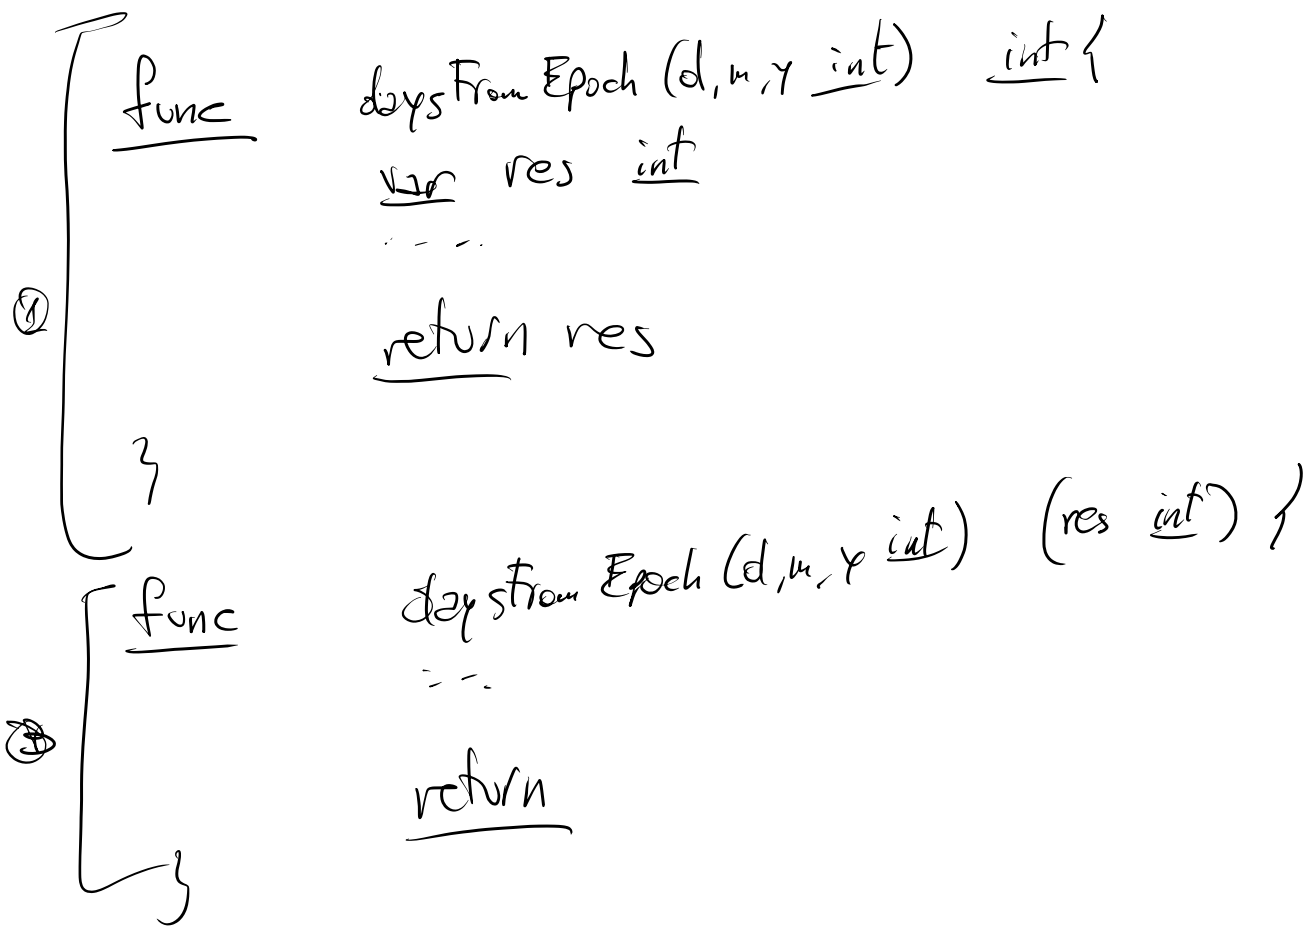 func daysFromEpoch (d, m, y int) int {
var res int
....
return res
}
①
func daysFromEpoch (d, m, y int) (res int) {
...
return
}